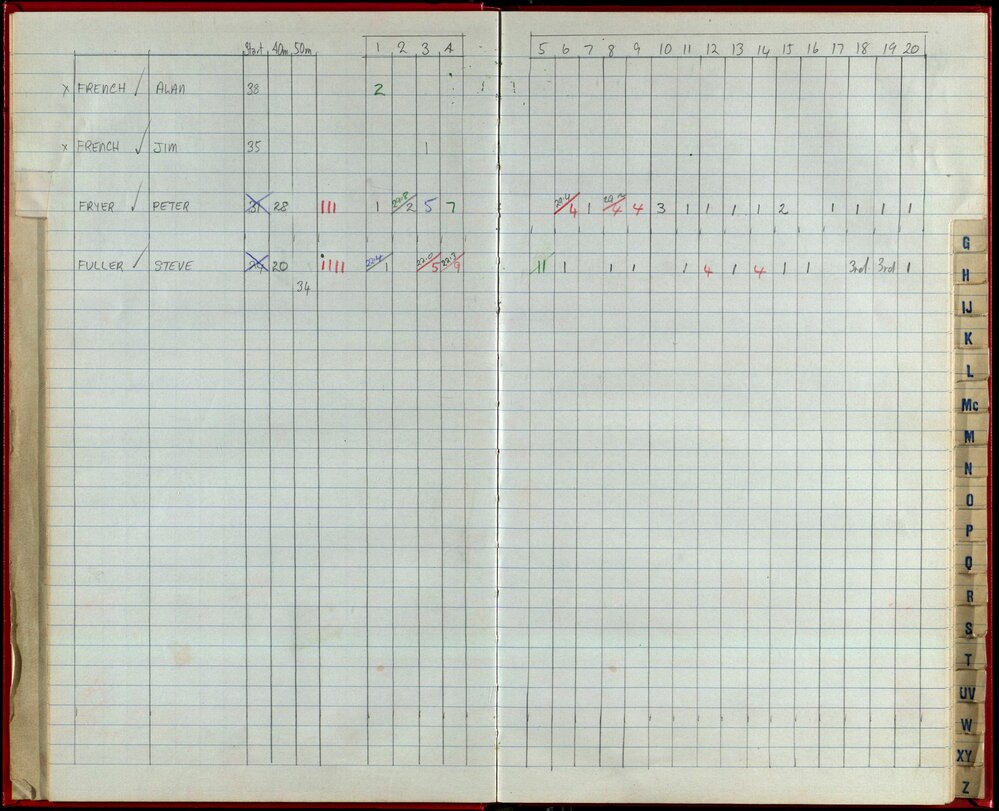 Start 40m 50m 1 2 3 4 5 6 7 8 9 10 11 12 13 14 15 16 17 18 19 20
x FRENCH ✓ ALAN 38 2
x FRENCH ✓ JIM 35 1
FRYER ✓ PETER 31 28 III 1 29.8/2 5 7 29.4/4 1 4 4 3 1 1 1 1 2 1 1 1 1
FULLER ✓ STEVE 20 IIII 22.4/1 22.0/5 22.3/9 11 1 1 1 1 4 1 4 1 1 3rd 3rd 1
34
G
H
IJ
K
L
Mc
M
N
O
P
Q
R
S
T
UV
W
XY
Z